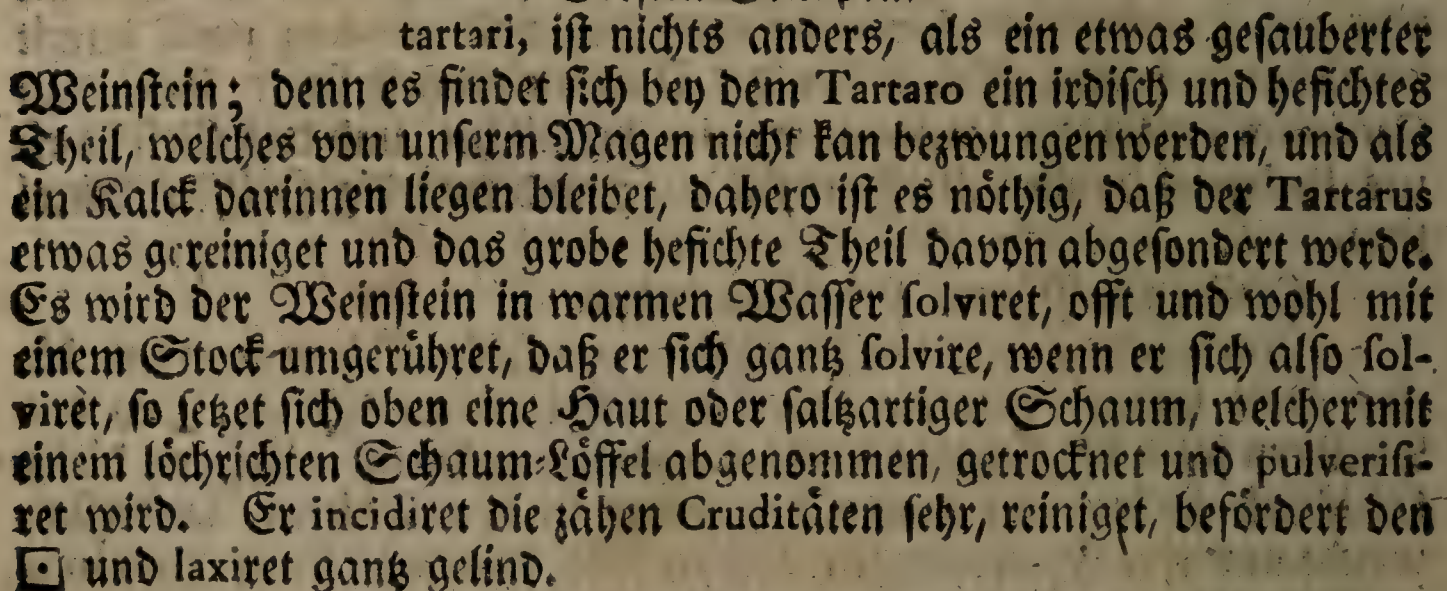 tartari, iſt nichts anders, als ein etwas geſauberter
Weinſtein; denn es findet ſich bey dem Tartaro ein irdiſch und hefichtes
Theil, welches von unſerm Magen nicht kan bezwungen werden, und als
ein Kalck darinnen liegen bleibet, dahero iſt es nöthig, daß der Tartarus
etwas gereiniget und das grobe hefichte Theil davon abgeſondert werde.
Es wird der Weinſtein in warmen Waſſer ſolviret, offt und wohl mit
einem Stock umgerühret, daß er ſich gantz ſolvire, wenn er ſich alſo ſol-
viret, ſo ſetzet ſich oben eine Haut oder ſaltzartiger Schaum, welcher mit
einem löchrichten Schaum-Löffel abgenommen, getrocknet und pulveriſi-
ret wird. Er incidiret die zähen Cruditäten ſehr, reiniget, befördert den
⚀ und laxiret gantz gelind.